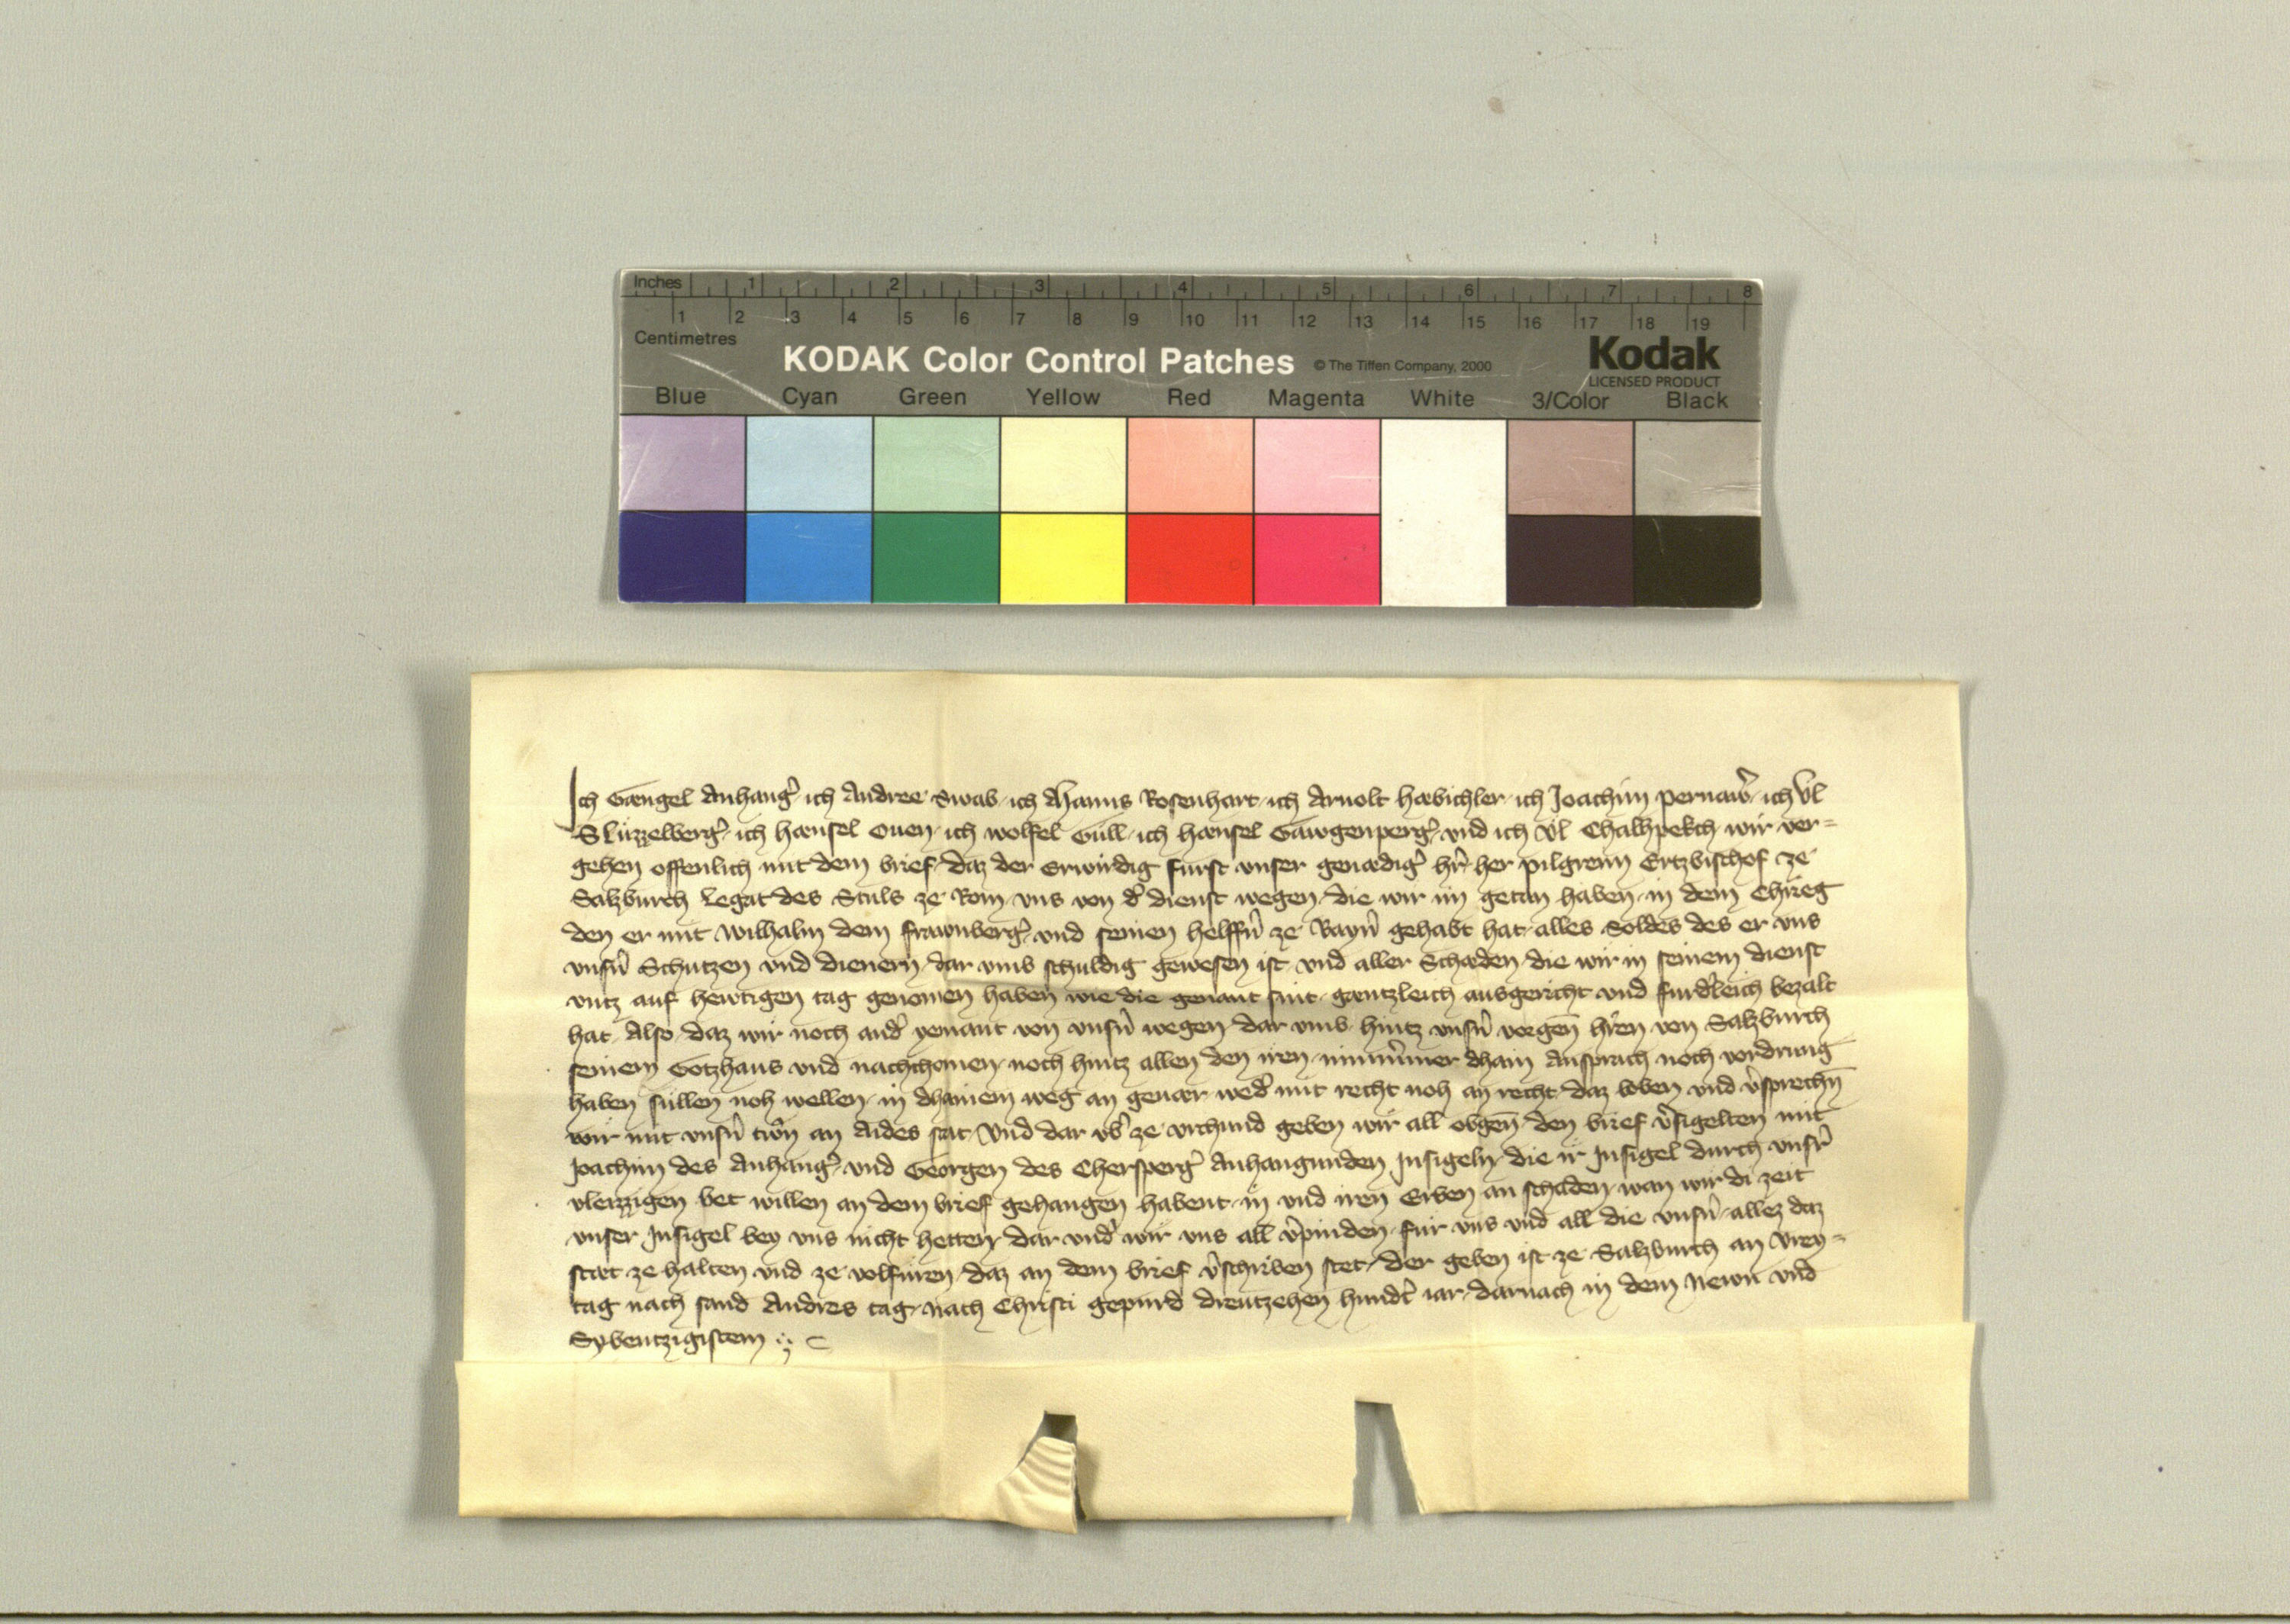 Inches 1 2 3 4 5 6 7 8
1 2 3 4 5 6 7 8 9 10 11 12 13 14 15 16 17 18 19
Centimetres
KODAK Color Control Patches © The Tiffen Company, 2000 Kodak
LICENSED PRODUCT
Blue Cyan Green Yellow Red Magenta White 3/Color Black
Ich Gaengel Anhang̉ ich Andree Swab ich Hanns Rosenhart ich Arnolt Haebichler ich Joachim pernaẘ ich Ul
Slüzzelberg̉ ich Haensel Ouen ich wolfel Güll ich Haensel Gawgenperg̉ vnd ich Ul Chalhpekch wir ver=
gehen offenlich mit dem brief daz der Erwirdig fürst vnser genaedig̉ hr̄ her pilgreim Ertzbischof ze
Salzburch Legat des Stuls ze Rom vns von d̉ dienst wegen die wir im getan haben in dem Chrieg
den er mit Wilhalm dem frawnberg̉ vnd seinen helffn̉ ze Bayn̉ gehabt hat alles Soldes des er vns
vnsn̉ Schutzen vnd dienern dar vmb schuldig gewesen ist vnd aller Schaeden die wir in seinem dienst
vntz auf hewtigen tag genomen haben wie die genant sint gaentzleich ausgericht vnd fürd̉leich bezalt
hat Also daz wir noch and̉ yemant von vnsn̉ wegen dar vmb hintz vnsn̉ vorgen̄ hr̄en von Salzburch
seinem Gotzhaus vnd nachchomen noch hintz allen den iren nimm̉mer dhain Ansprach noch vordrung
haben süllen noh wellen in dhainem weg an geuaer wed̉ mit recht noh an recht daz loben vnd v̉sprechn̄
wir mit vnsn̉ trẘn an Aides stat Vnd dar vb̉ ze vrchund geben wir all obgen̄ den brief v̉sigelten mit
Joachim des Anhang̉ vnd Georgen des Chersperg̉ Anhangunden Insigeln die ir Insigel durch vnsr̉
vleizzigen bet willen an dem brief gehangen habent in vnd iren Erben an schaden wan wir di zeit
vnser Insigel bey vns nicht hetten dar vnd̉ wir vns all v̉pinden für vns vnd all die vnsn̉ allez daz
staet ze halten vnd ze volfüren daz an dem brief v̉schriben stet der geben ist ze Salzburch an Vrey=
tag nach sand Andres tag nach Christi gepurd dreutzehen hundt̉ iar darnach in dem Newn vnd
Sybentzigistem